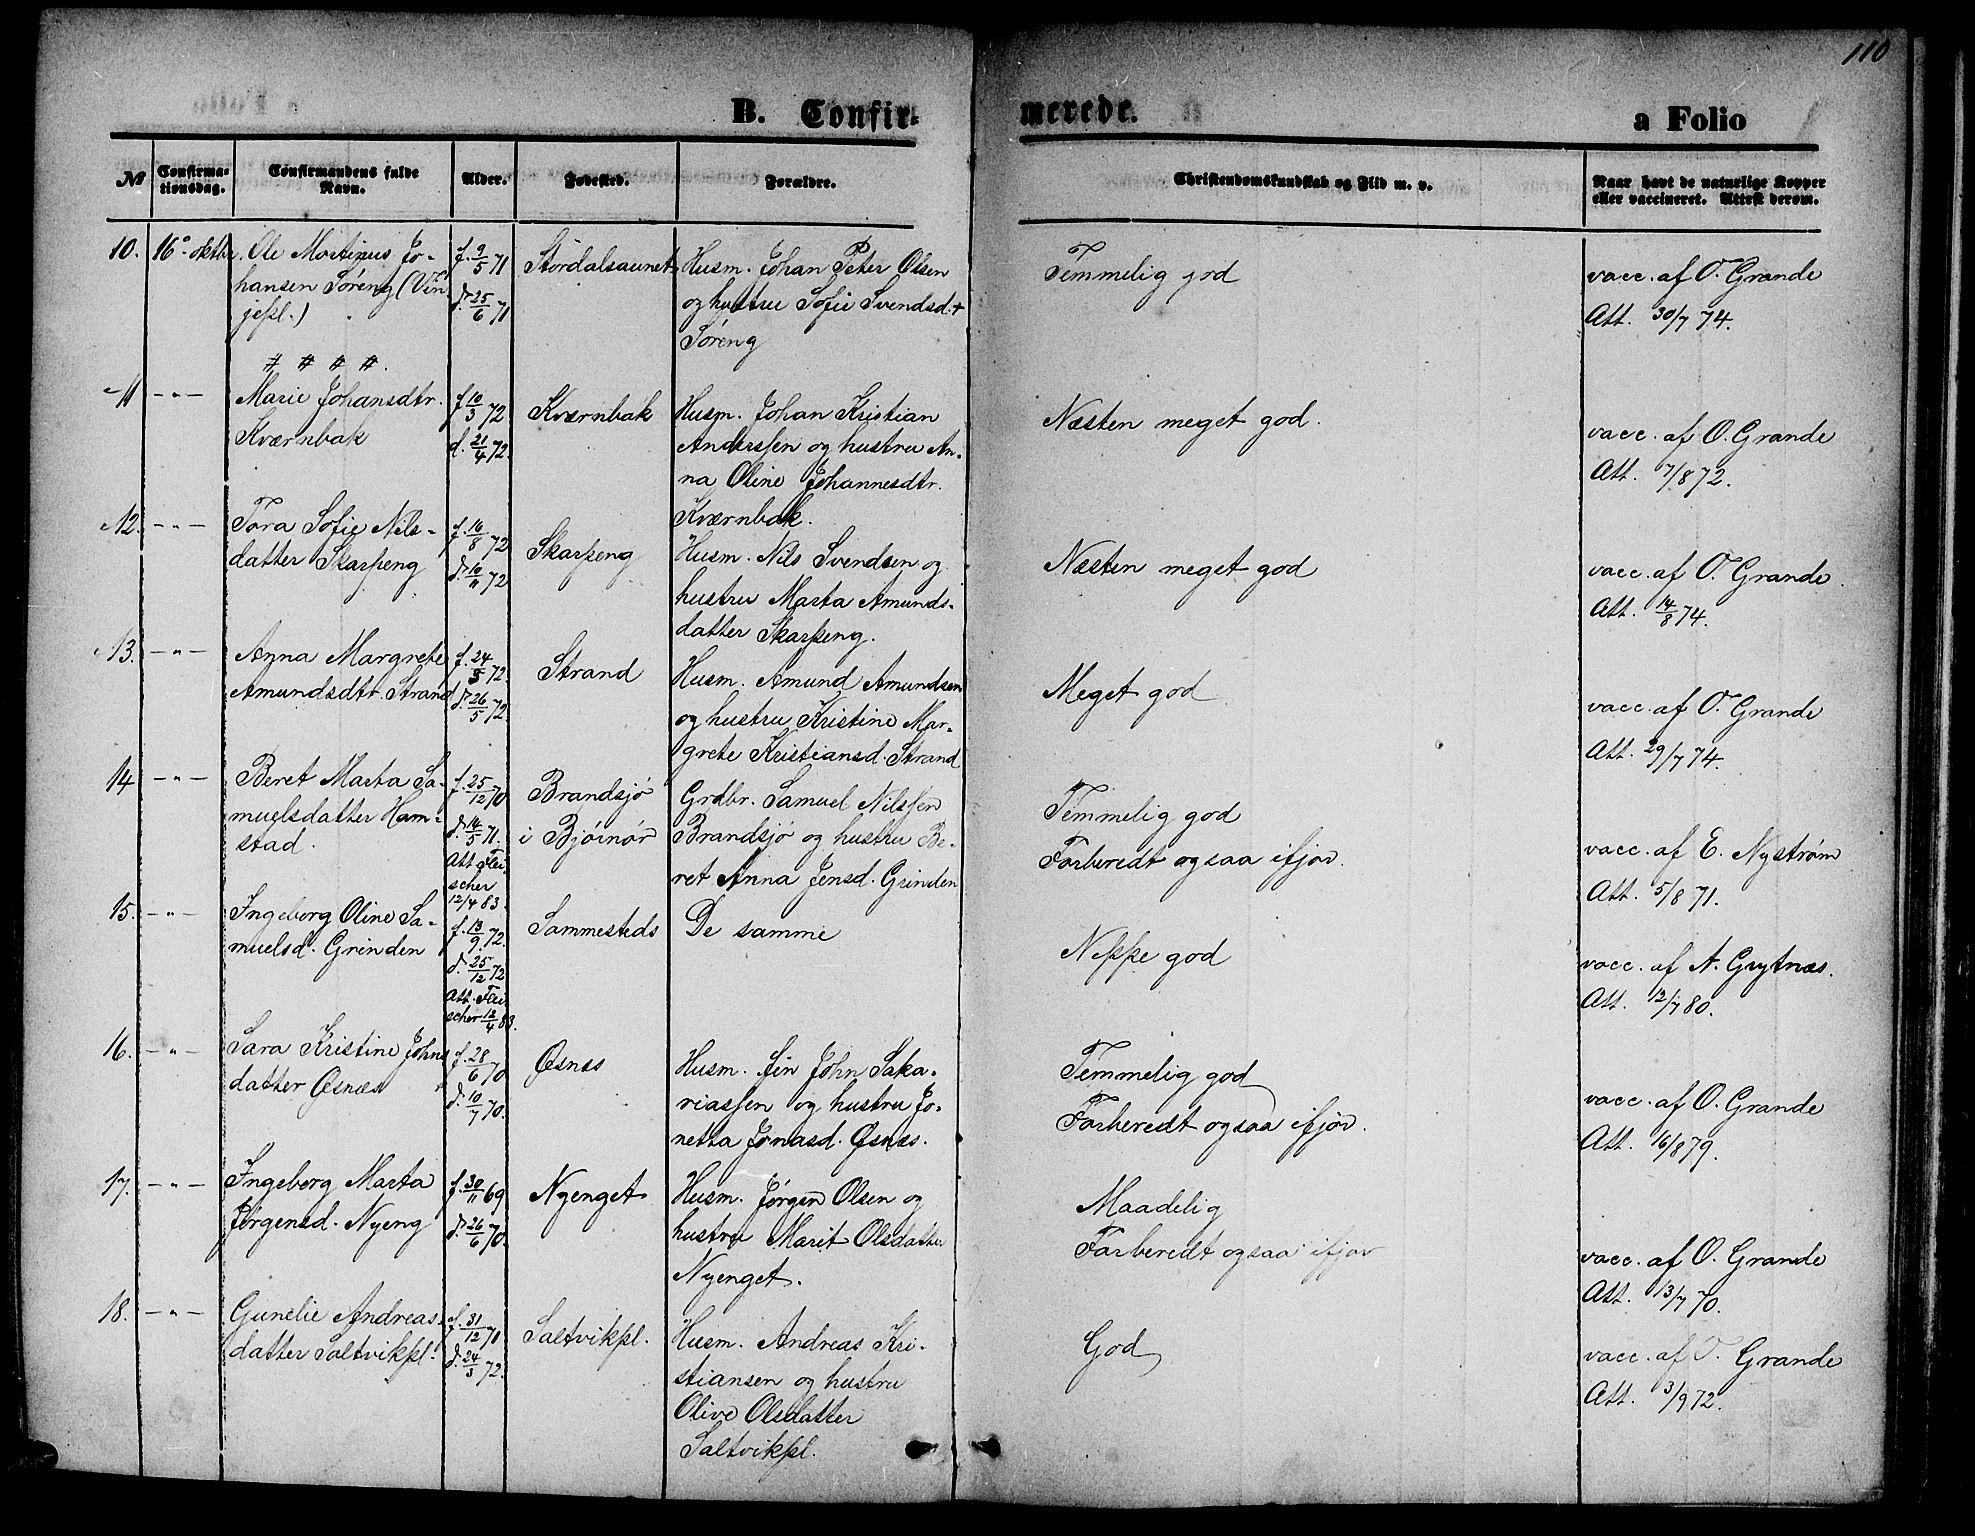 110
B. Confir-
merede.
a Folio
№
Confirma-
tionsdag.
Confirmandens fulde
Navn.
Alder.
Fødested.
Forældre.
Christendomskundskab og Flid m. v.
Naar havt de naturlige Kopper
eller vaccineret. Attest derom.
10.
16de oktbr.
Ole Martinus Jo-
hansen Søreng (Vin
jepl.)
f. 9/5 71
d. 25/6 71
Stordalsaunet
Husm. Johan Peter Olsen
og hustru Sofie Svendsd. +
Søreng
Temmelig god
vacc. af O. Grande
Att. 30/7 74.
# # # #.
11
— " —
Marie Johansdtr.
Kværnbak
f. 10/3 72.
d. 21/4 72.
Kværnbak
Husm. Johan Kristian
Anderssen og hustru An-
na Oline Johannesdtr.
Kværnbak.
Næsten meget god.
vacc. af O. Grande
Att. 7/8 72.
12.
— " —
Tora Sofie Nils-
datter Skarpeng
f. 16/8 72
d. 10/11 72
Skarpeng
Husm. Nils Svendsen og
hustru Marta Amunds-
datter Skarpeng.
Næsten meget god
vacc. af O. Grande.
Att. 14/8 74.
13.
— " —
Anna Margrete
Amundsdtr. Strand
f. 24/3 72.
d. 26/5 72.
Strand
Husm. Amund Amundsen
og hustru Kristine Mar-
grete Kristiansd. Strand
Meget god
vacc. af O. Grande
Att. 29/7 74.
14
— " —
Beret Marta Sa-
muelsdatter Ham-
stad.
f. 25/12 70
d. 14/5 71.
Att. Flei-
scher
12/4 83.
Brandsjø
i Bjørnør
Grdbr. Samuel Nilssen
Brandsjø og hustru Be-
ret Anna Jensd. Grinden
Temmelig god
Forberedt ogsaa ifjor.
vacc. af E. Nystrøm
Att. 5/8 71.
15.
— " —
Ingeborg Oline Sa-
muelsd. Grinden
f. 13/9 72.
d. 25/12 72
Att. Flei-
scher 12/4 83.
Sammesteds
De samme
Neppe god
vacc. af A. Grytnæs.
Att. 12/7 80.
16.
— " —
Sara Kristine Johns
datter Øsnæs
f. 28/6 70
d. 10/7 70.
Øsnes
Husm. Fin John Saka-
riassen og hustru Jo-
netta Jonasd. Øsnæs.
Temmelig god
Forberedt ogsaa ifjor.
vacc. af O. Grande
Att. 16/8 79.
17.
— " —
Ingeborg Marta
Jørgensd. Nyeng
f. 30/11 69
d. 26/6 70.
Nyenget
Husm. Jørgen Olsen og
hustru Marit Olsdatter
Nyenget.
Maadelig
Forberedt ogsaa ifjor
vacc. af O. Grande
Att. 13/7 70.
18.
— " —
Gunelie Andreas-
datter Saltvikpl.
f. 31/12 71
d. 24/3 72.
Saltvikpl.
Husm. Andreas Kri-
stiansen og hustru
Olive Olsdatter
Saltvikpl.
God
vacc. af O. Grande
Att. 3/9 72.